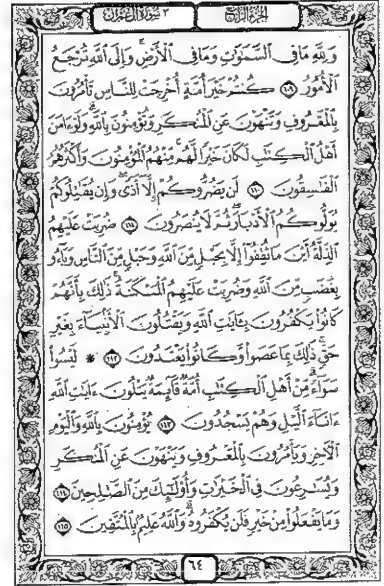 الجزء الرابع
٣ سورة آل عمران
وَلِلَّهِ مَا فِي ٱلسَّمَٰوَٰتِ وَمَا فِي ٱلْأَرْضِ ۚ وَإِلَى ٱللَّهِ تُرْجَعُ
ٱلْأُمُورُ ١٠٩ كُنتُمْ خَيْرَ أُمَّةٍ أُخْرِجَتْ لِلنَّاسِ تَأْمُرُونَ
بِٱلْمَعْرُوفِ وَتَنْهَوْنَ عَنِ ٱلْمُنكَرِ وَتُؤْمِنُونَ بِٱللَّهِ ۗ وَلَوْ ءَامَنَ
أَهْلُ ٱلْكِتَٰبِ لَكَانَ خَيْرًا لَّهُم ۚ مِّنْهُمُ ٱلْمُؤْمِنُونَ وَأَكْثَرُهُمُ
ٱلْفَٰسِقُونَ ١١٠ لَن يَضُرُّوكُمْ إِلَّآ أَذًى ۖ وَإِن يُقَٰتِلُوكُمْ
يُوَلُّوكُمُ ٱلْأَدْبَارَ ثُمَّ لَا يُنصَرُونَ ١١١ ضُرِبَتْ عَلَيْهِمُ
ٱلذِّلَّةُ أَيْنَ مَا ثُقِفُوٓا۟ إِلَّا بِحَبْلٍ مِّنَ ٱللَّهِ وَحَبْلٍ مِّنَ ٱلنَّاسِ وَبَآءُو
بِغَضَبٍ مِّنَ ٱللَّهِ وَضُرِبَتْ عَلَيْهِمُ ٱلْمَسْكَنَةُ ۚ ذَٰلِكَ بِأَنَّهُمْ
كَانُوا۟ يَكْفُرُونَ بِـَٔايَٰتِ ٱللَّهِ وَيَقْتُلُونَ ٱلْأَنۢبِيَآءَ بِغَيْرِ
حَقٍّ ۚ ذَٰلِكَ بِمَا عَصَوا۟ وَّكَانُوا۟ يَعْتَدُونَ ١١٢ * لَيْسُوا۟
سَوَآءً ۗ مِّنْ أَهْلِ ٱلْكِتَٰبِ أُمَّةٌ قَآئِمَةٌ يَتْلُونَ ءَايَٰتِ ٱللَّهِ
ءَانَآءَ ٱلَّيْلِ وَهُمْ يَسْجُدُونَ ١١٣ يُؤْمِنُونَ بِٱللَّهِ وَٱلْيَوْمِ
ٱلْءَاخِرِ وَيَأْمُرُونَ بِٱلْمَعْرُوفِ وَيَنْهَوْنَ عَنِ ٱلْمُنكَرِ
وَيُسَٰرِعُونَ فِي ٱلْخَيْرَٰتِ وَأُو۟لَٰٓئِكَ مِنَ ٱلصَّٰلِحِينَ ١١٤
وَمَا يَفْعَلُوا۟ مِنْ خَيْرٍ فَلَن يُكْفَرُوهُ ۗ وَٱللَّهُ عَلِيمٌۢ بِٱلْمُتَّقِينَ ١١٥
٦٤